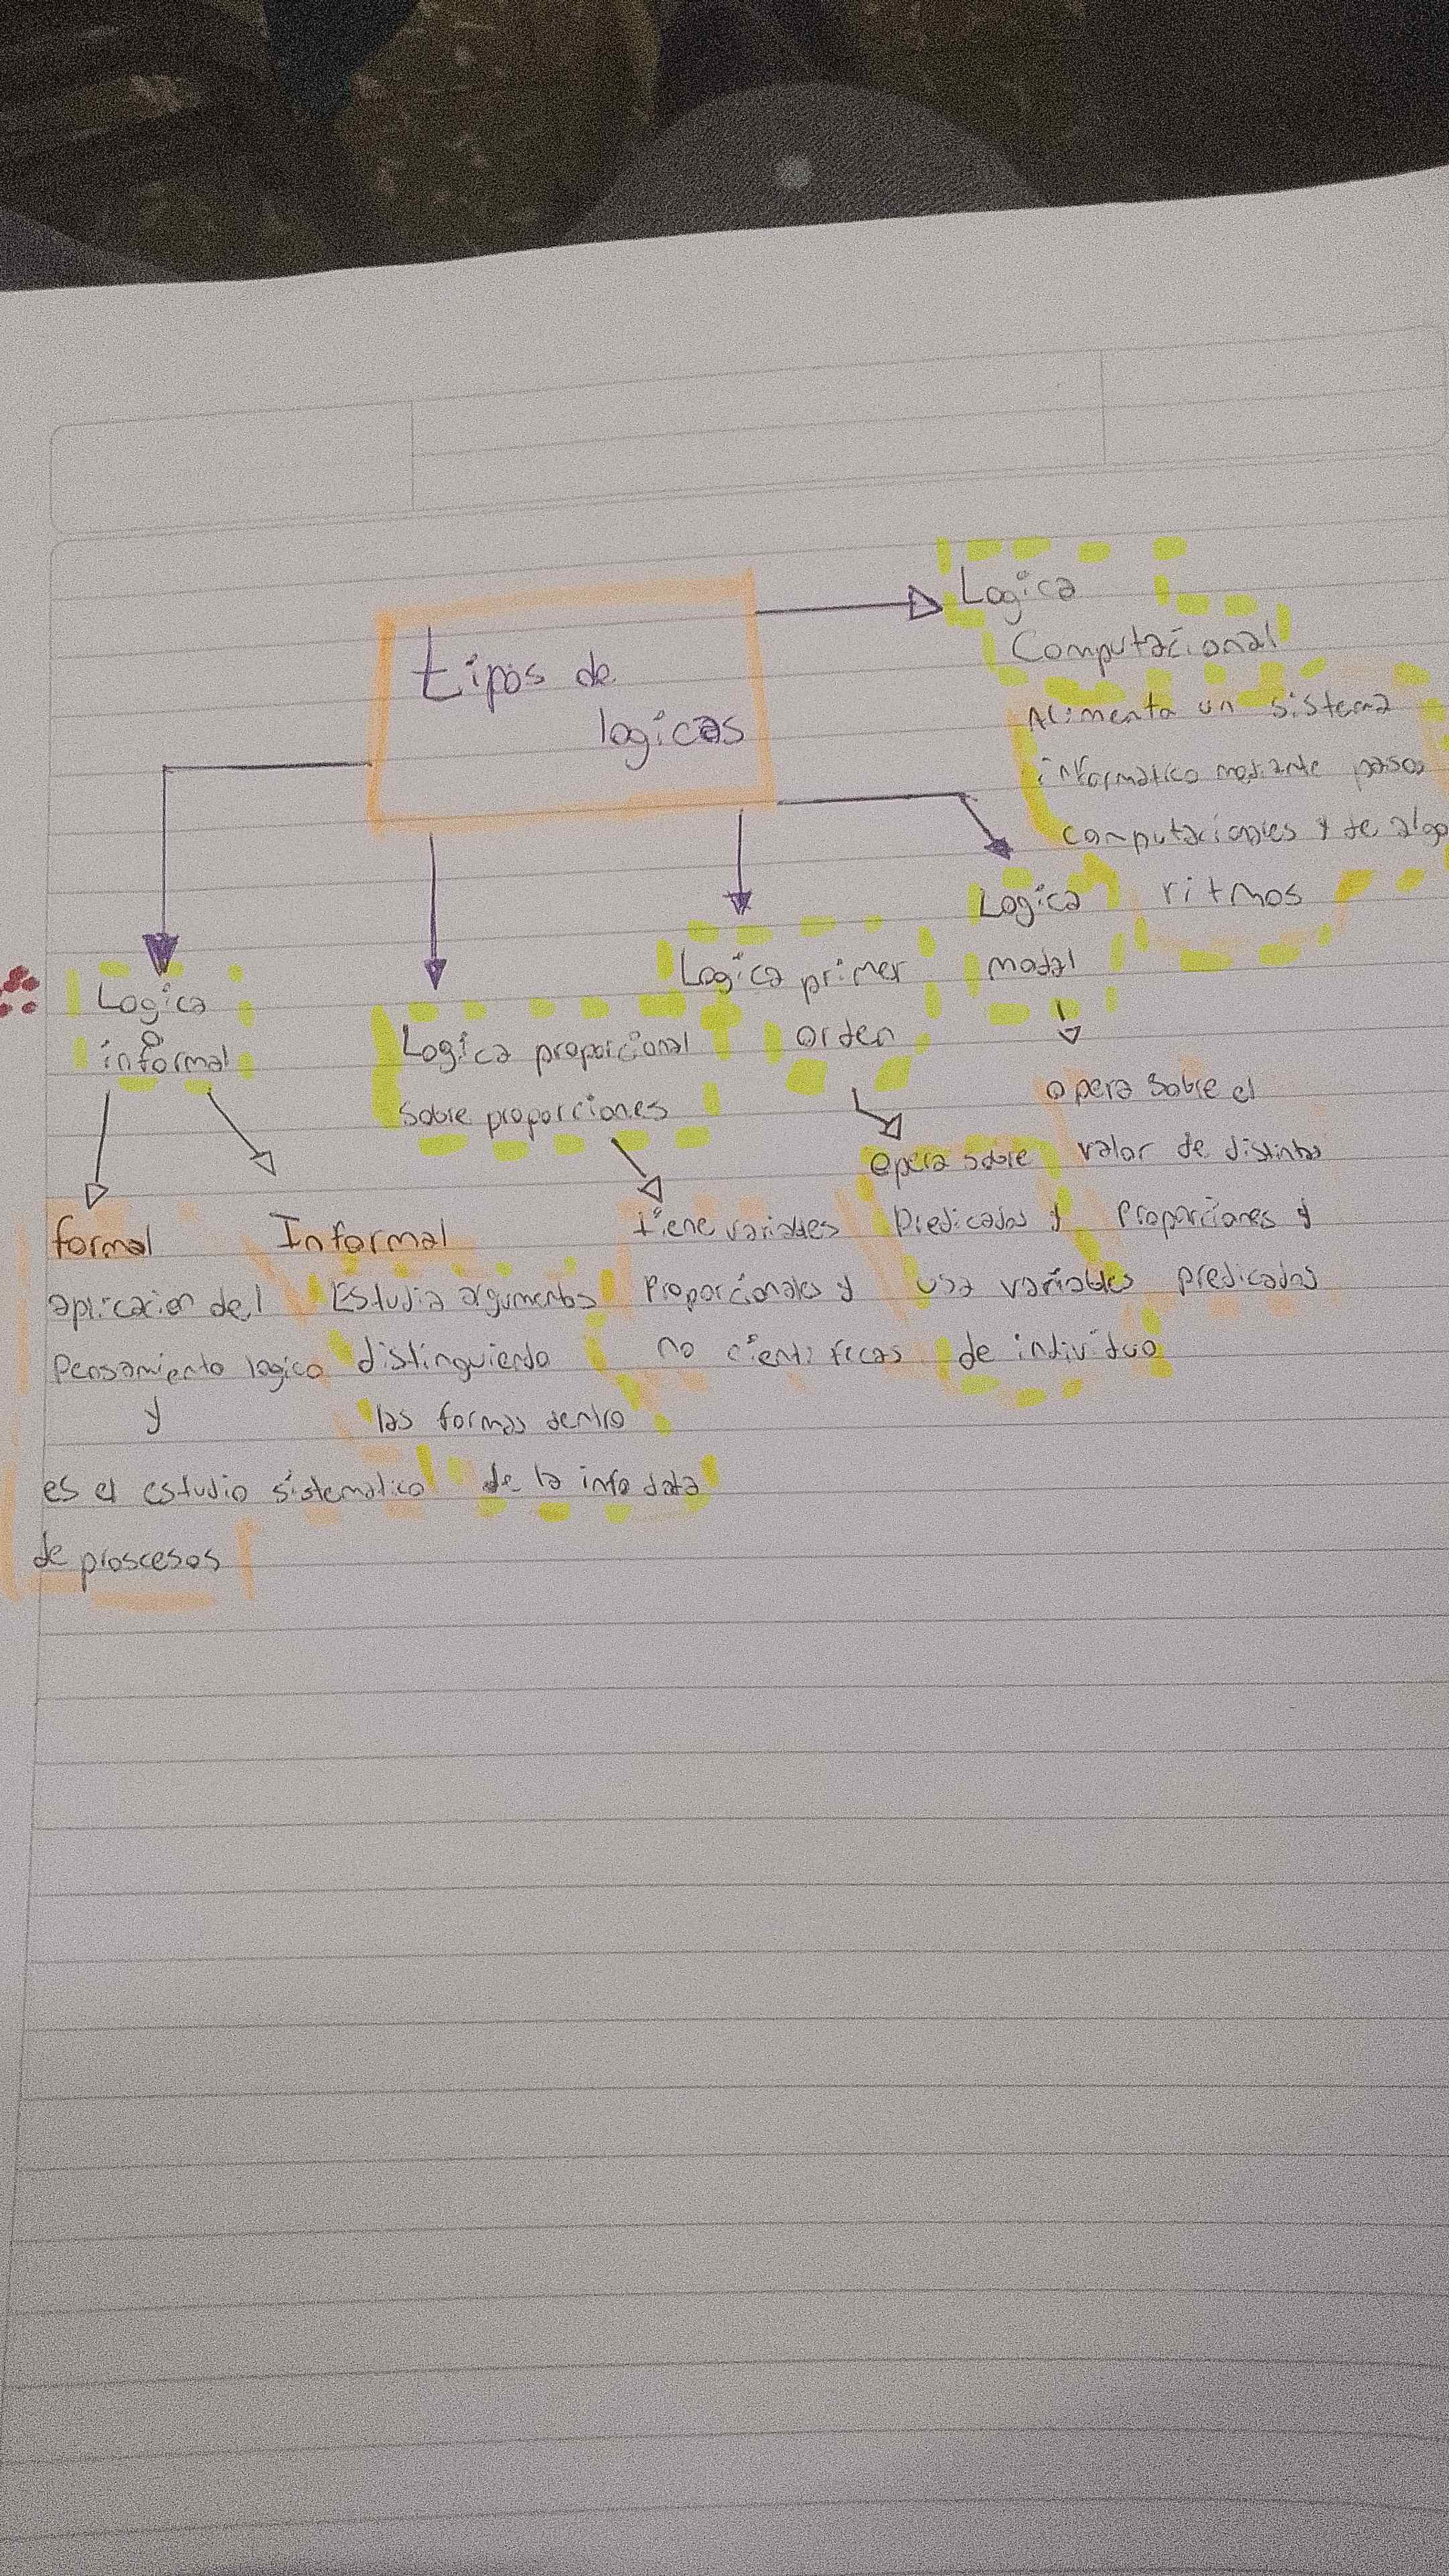 tipos de
logicas
Logica
Computacional
Alimenta un sistema
informatico mediante pasos
computacionales y de algo
ritmos
Logica
modal
opera sobre el
valor de distintas
proporciones y
predicados
Logica primer
orden
opera sobre
Predicados y
usa variables
de individuo
Logica proporcional
sobre proporciones
tiene variables
Proporcionales y
no cientificas
Logica
o
informal
formal
aplicacion del
Pensamiento logico
y
es el estudio sistematico
de proscesos
Informal
Estudia argumentos
distinguiendo
las formas dentro
de la info data